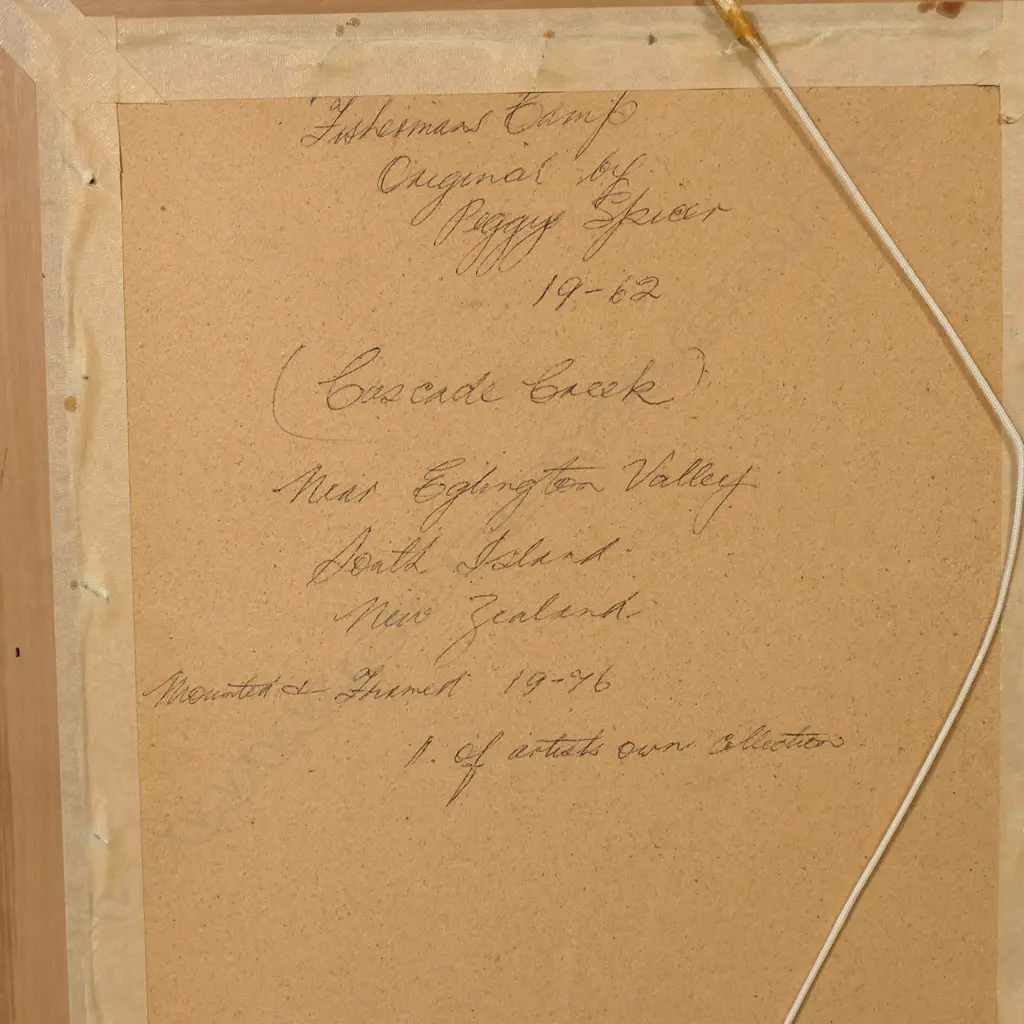 Fishermans Camp
Original by
Peggy Spicer
19-62
(Cascade Creek)
Near Eglington Valley
South Island
New Zealand.
Mounted & Framed 19-76
11. of artists own collection